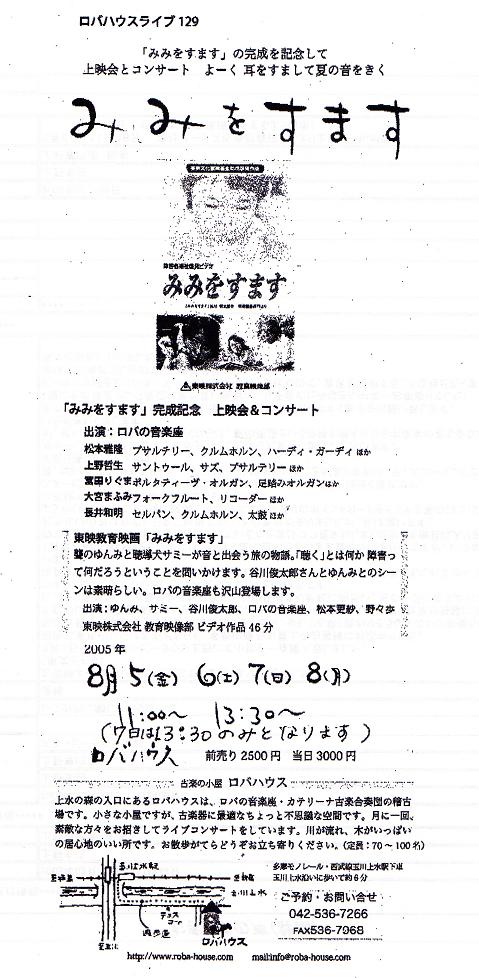 ロバハウスライブ 129
「みみをすます」の完成を記念して
上映会とコンサート よーく 耳をすまして夏の音をきく
みみをすます
みみをすます
東映株式会社 教育映像部
「みみをすます」完成記念 上映会＆コンサート
出演：ロバの音楽座
松本雅隆 プサルテリー、クルムホルン、ハーディ・ガーディ ほか
上野哲生 サントゥール、サズ、プサルテリー ほか
富田りぐま ポルタティーヴ・オルガン、足踏みオルガン ほか
大宮まふみ フォークフルート、リコーダー ほか
長井和明 セルパン、クルムホルン、太鼓 ほか
東映教育映画「みみをすます」
聾のゆんみと聴導犬サミーが音と出会う旅の物語。「聴く」とは何か 障害っ
て何だろうということを問いかけます。谷川俊太郎さんとゆんみとのシー
ンは素晴らしい。ロバの音楽座も沢山登場します。
出演：ゆんみ、サミー、谷川俊太郎、ロバの音楽座、松本更紗、野々歩
東映株式会社 教育映像部 ビデオ作品 46 分
2005 年
8月5(金) 6(土) 7(日) 8(月)
11:00〜 13:30〜
(7日は13:30のみとなります)
ロバハウス 前売り 2500 円 当日 3000 円
古楽の小屋 ロバハウス
上水の森の入口にあるロバハウスは、ロバの音楽座・カテリーナ古楽合奏団の稽古
場です。小さな小屋ですが、古楽器に最適なちょっと不思議な空間です。月に一回、
素敵な方々をお招きしてライブコンサートをしています。川が流れ、木がいっぱい
の居心地のいい所です。お散歩がてらどうぞお立ち寄りください。(定員：70〜100 名)
多摩モノレール・西武線玉川上水駅下車
玉川上水沿いに歩いて約 6 分
玉川上水
遊歩道
ロバハウス
ご予約・お問い合せ
042-536-7266
FAX536-7968
http://www.roba-house.com mail:info@roba-house.com